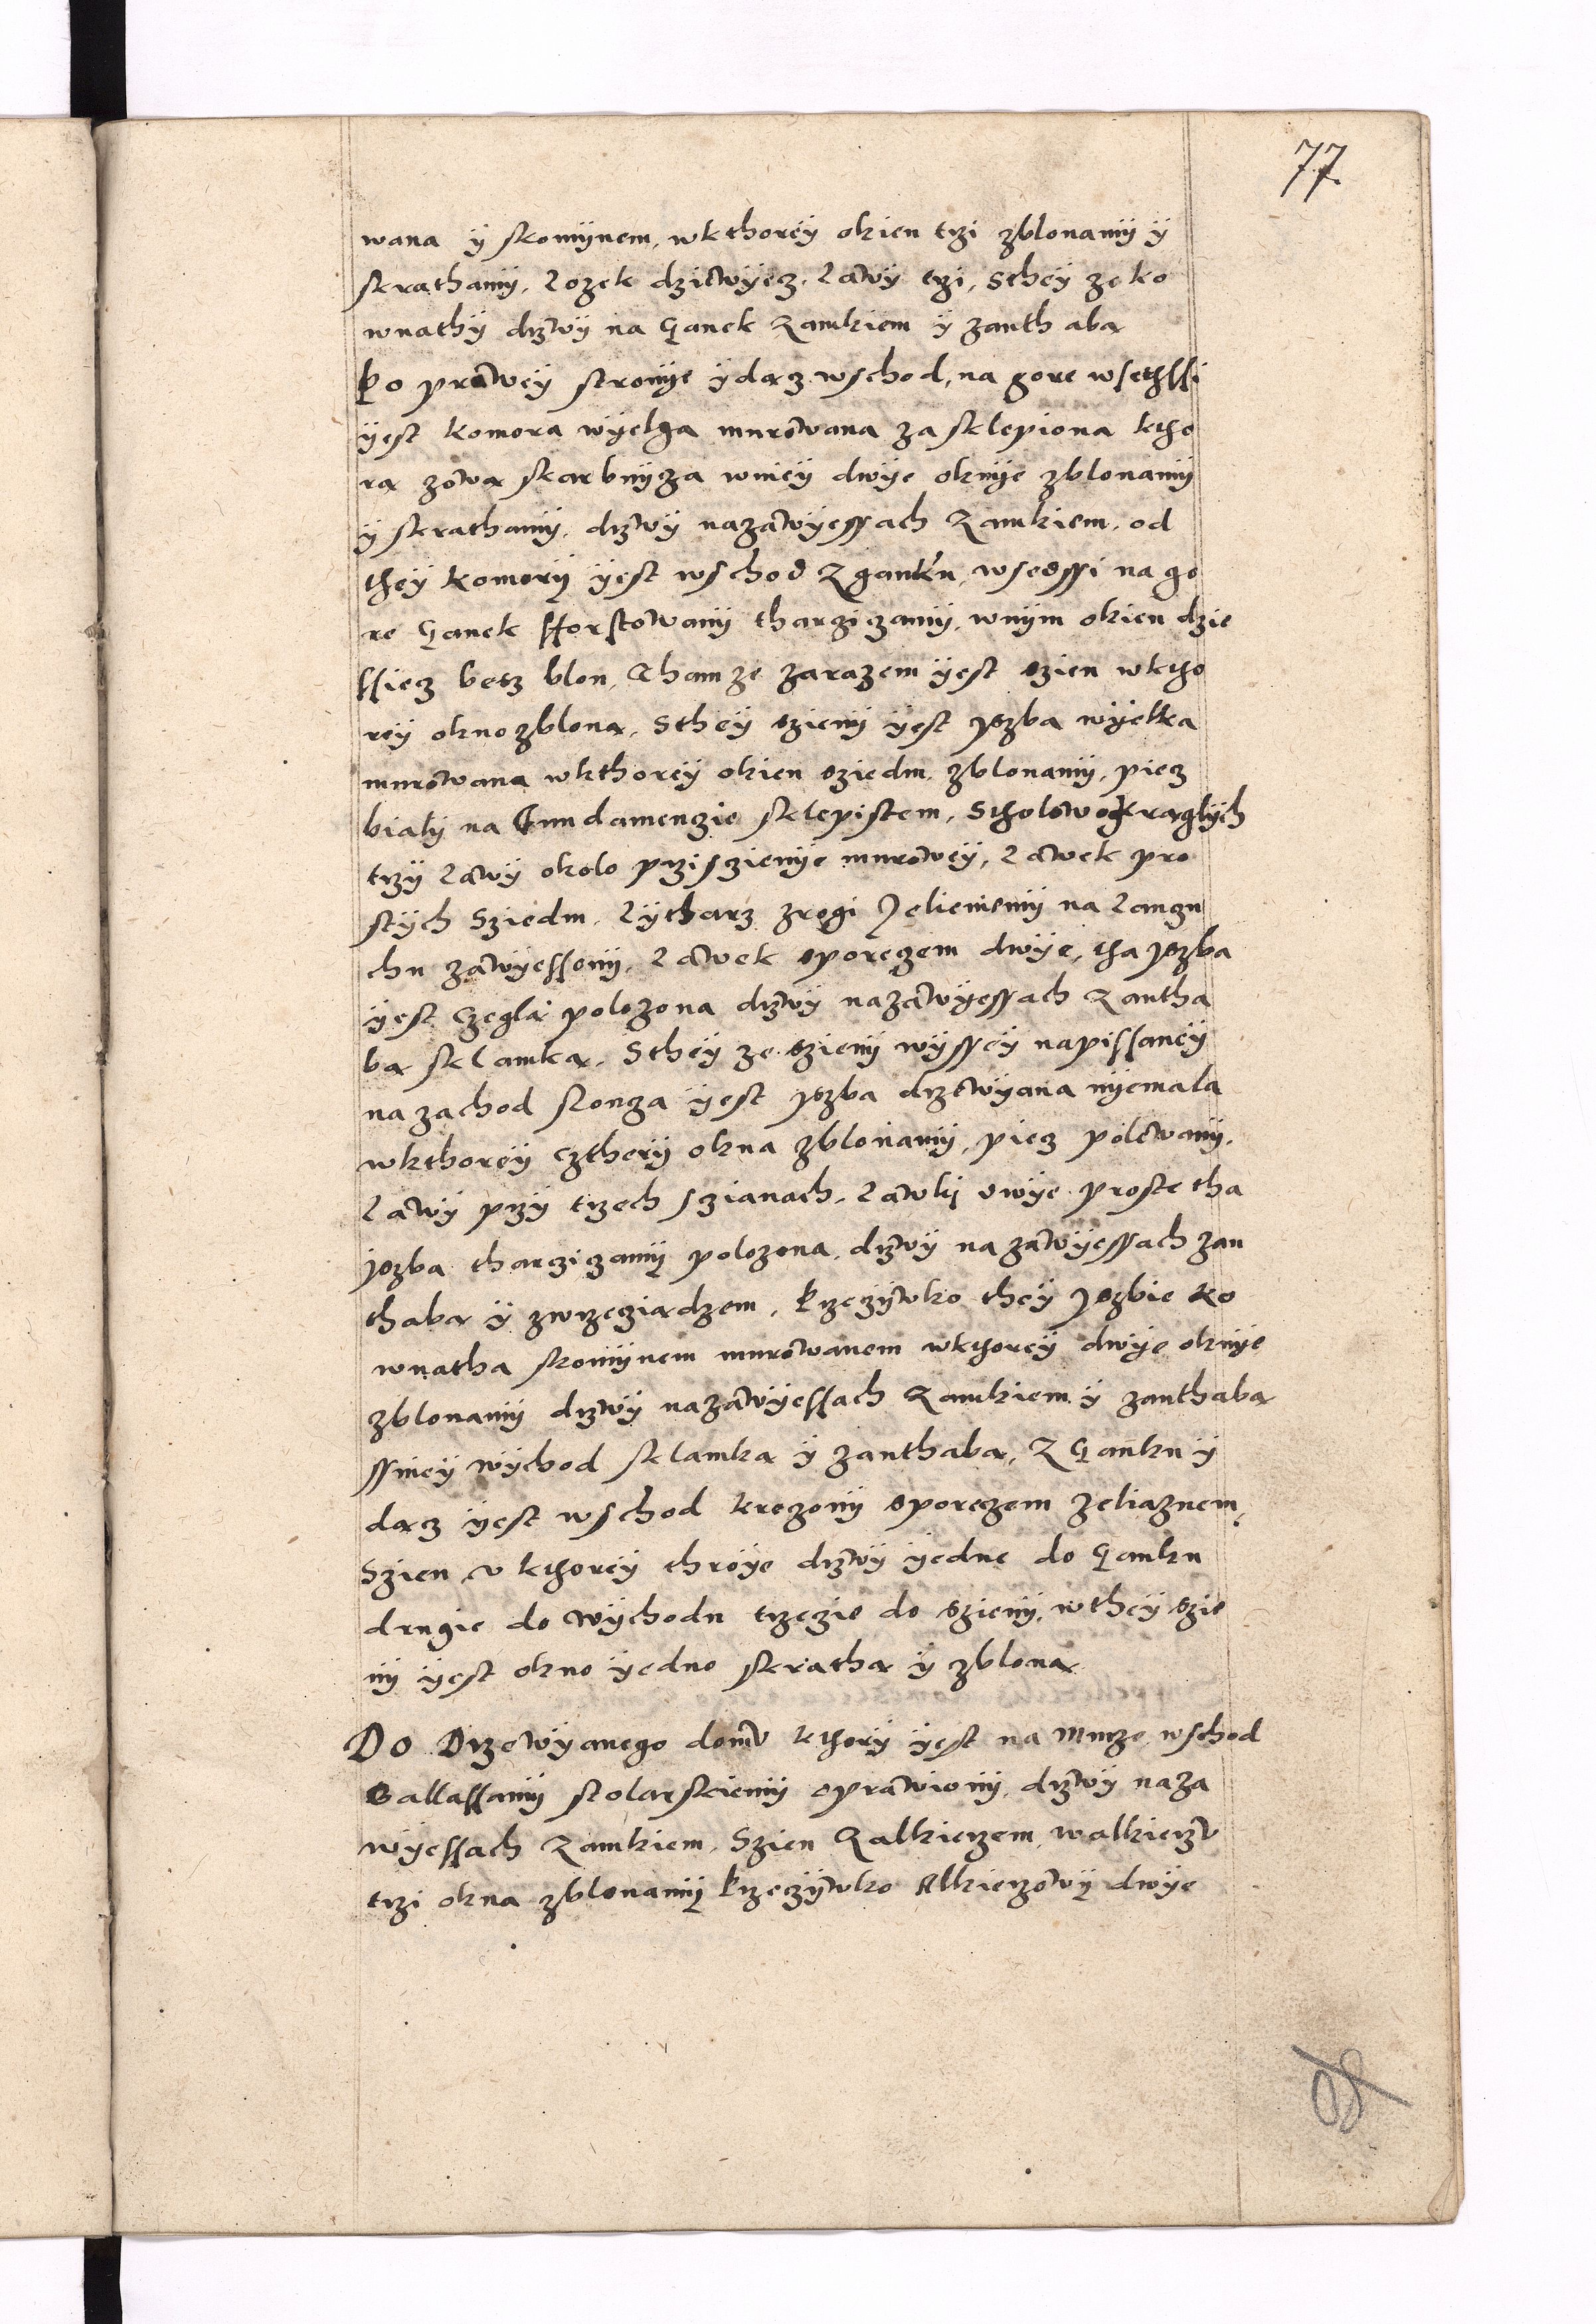 77.
wana ÿ skomÿnem, wkthorëÿ okien trzi zblonamÿ ÿ
skrathamÿ, Lozek dziewÿecz. Lawÿ trzi, Sthëÿ ze ko
wnathÿ drzwÿ na Ganek Zamkiem ÿ zanthaba
Po prawëÿ stronÿe ÿdacz wschod, na gore wsethssi
ÿest komora wÿelga murowana zasklepiona ktho
ra zowa skarbnÿza wniëÿ dwÿe oknÿe zblonamÿ
ÿ skrathamÿ, drzwÿ nazawÿessach Zamkiem, od
thëÿ komorÿ ÿest wschod Zganku, wsedssi na go
re Ganek fforstowanÿ tharzizamÿ, wnÿm okien dzie
ssiecz betz blon, Thamze zarazem ÿest szien wktho
rëÿ okno zblona, Sthëÿ szienÿ ÿest yszba wÿelka
murowana wkthorëÿ okien sziedm, zblonamÿ, piecz
bialÿ na Fundamenczie sklepistem, Stholow okraglÿch
trzÿ Lawÿ okolo przi sczienÿe murowëÿ, Lawek pro
stÿch Sziedm, Lÿtharz zrogi Jelieniemÿ na Lanczu
chu zawÿessonÿ, Lawek sporeczem dwÿe, tha yszba
ÿest Czegla polozona drzwÿ nazawÿessach Zantha
ba sklamka, Sthëÿ ze szienÿ wÿssëÿ napissanëÿ
na zachod slonza ÿest yszba drzewÿana nÿemala
wkthorëÿ cztherÿ okna zblonamÿ, piecz polewanÿ,
Lawÿ przÿ trzech sczianach, Lawki dwÿe proste tha
yszba tharzizamÿ polozona, drzwÿ nazawÿessach zan
thaba ÿ zwrzecziadzem, Przeczÿwko thëÿ yszbie ko
wnatha skomÿnem murowanem wkthorëÿ dwÿe oknÿe
zblonamÿ drzwÿ nazawÿessach Zamkiem ÿ zanthaba
ssniëÿ wÿchod sklamka ÿ zanthaba, Z Ganku ÿ
dacz ÿest wschod kreczonÿ sporeczem zeliaznem,
Szien, v kthorëÿ throÿe drzwÿ ÿedne do Ganku
drugie do wÿchodu trzeczie do szienÿ, wthëÿ szie
nÿ ÿest okno ÿedno skratha ÿ zblona
Do Drzewÿanego domv kthorÿ ÿest na Murze wschod
Ballassamÿ stolarskiemÿ oprawionÿ, drzwÿ naza
wÿessach Zamkiem, Szien Zalkierzem, walkierzv
trzi okna zblonamÿ Przeczÿwko Alkierzowÿ dwÿe